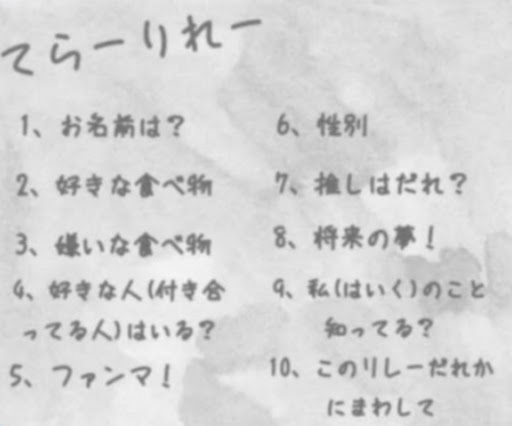 てらーりれー
1、お名前は？
2、好きな食べ物
3、嫌いな食べ物
4、好きな人(付き合
ってる人)はいる？
5、ファンマ！
6、性別
7、推しはだれ？
8、将来の夢！
9、私(はいく)のこと
知ってる？
10、このリレーだれか
にまわして